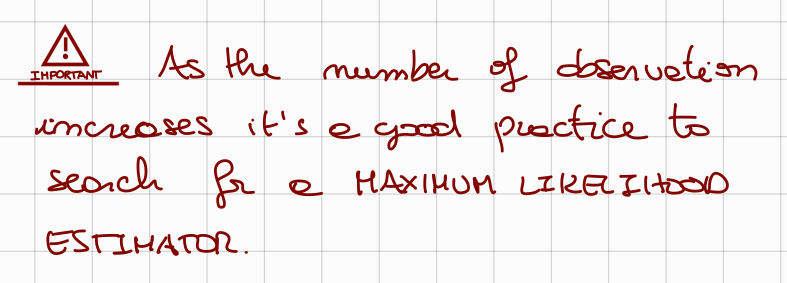 IMPORTANT
As the number of observation
increases it's a good practice to
search for a MAXIMUM LIKELIHOOD
ESTIMATOR.